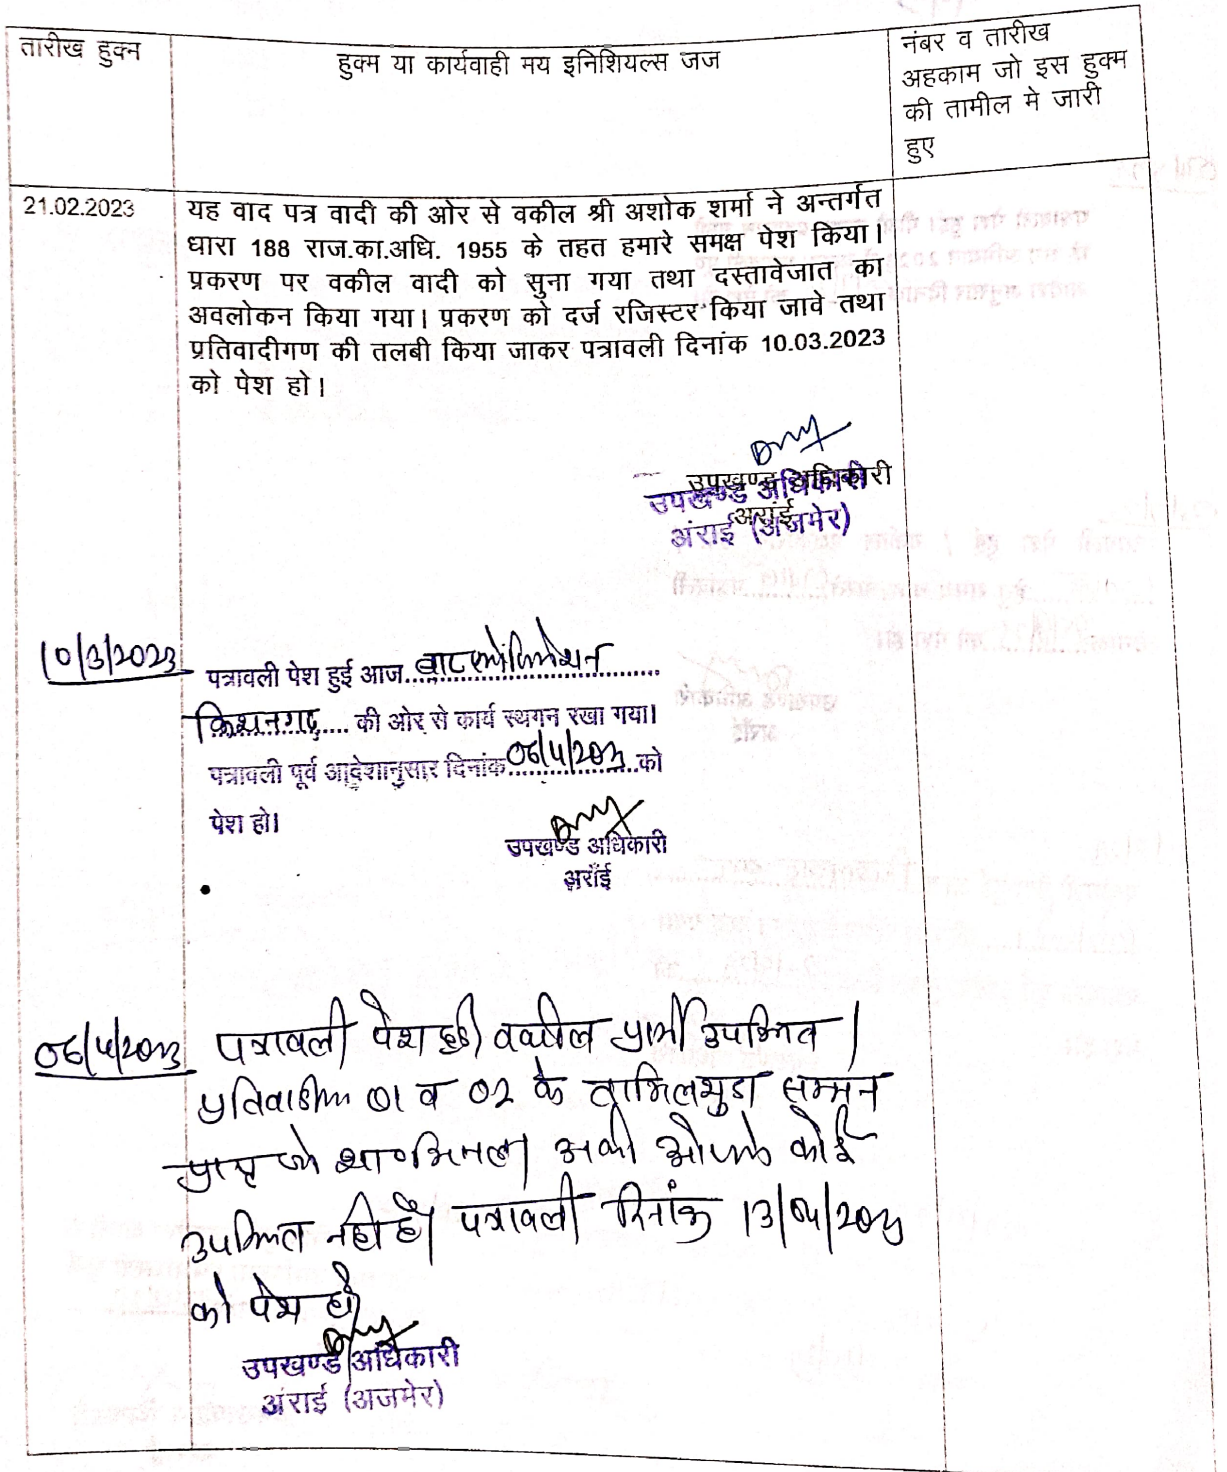 तारीख हुक्म
हुक्म या कार्यवाही मय इनिशियल्स जज
नंबर व तारीख
अहकाम जो इस हुक्म
की तामील मे जारी
हुए
21.02.2023
यह वाद पत्र वादी की ओर से वकील श्री अशोक शर्मा ने अन्तर्गत
धारा 188 राज.का.अधि. 1955 के तहत हमारे समक्ष पेश किया।
प्रकरण पर वकील वादी को सुना गया तथा दस्तावेजात का
अवलोकन किया गया। प्रकरण को दर्ज रजिस्टर किया जावे तथा
प्रतिवादीगण की तलबी किया जाकर पत्रावली दिनांक 10.03.2023
को पेश हो।
उपखण्ड अधिकारी
अरांई
उपखण्ड अधिकारी
अंराई (अजमेर)
10/3/2023
पत्रावली पेश हुई आज..........
किशनगढ़.... की ओर से कार्य स्थगन रखा गया।
पत्रावली पूर्व आदेशानुसार दिनांक 06/4/2023 को
पेश हो।
उपखण्ड अधिकारी
अराँई
06/4/2023
पत्रावली पेश हुई। वकील प्रार्थी उपस्थित।
01 व 02 के सम्मन
कोई
उपस्थित नही है। पत्रावली दिनांक 13/04/2023
को पेश हो।
उपखण्ड अधिकारी
अंराई (अजमेर)